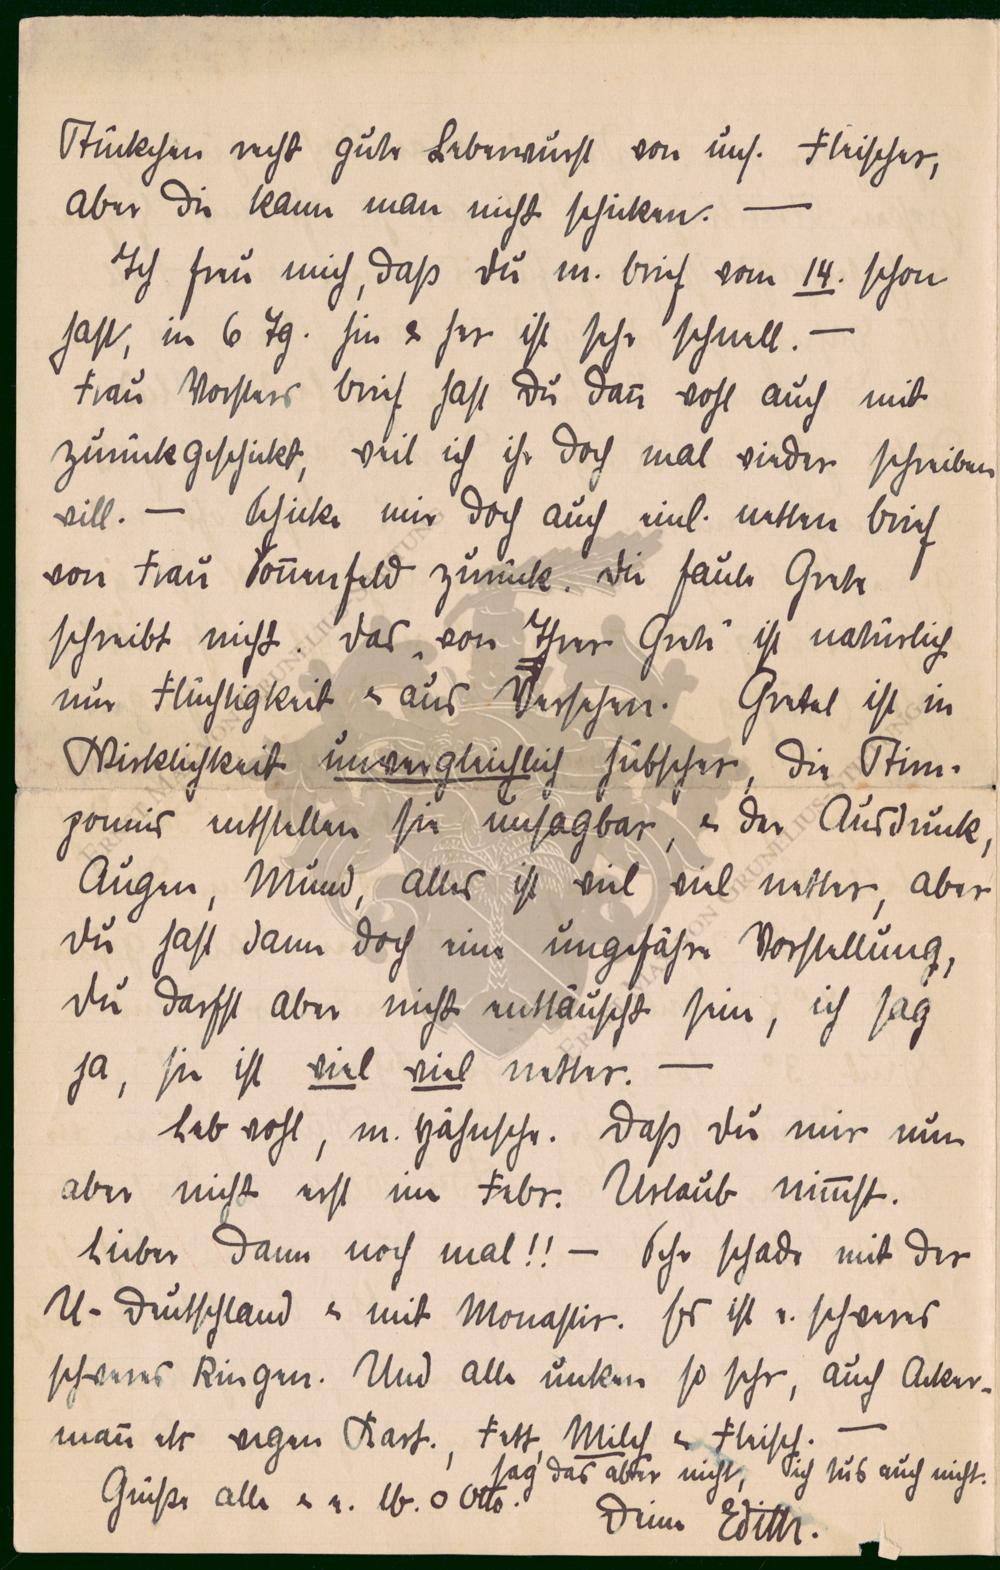 Stückchen recht gute Leberwurst von uns. Fleischer,
aber die kann man nicht schicken. —
Ich freu mich, daß Du m. Brief vom 14. schon
hast, in 6 Tg. hin & her ist sehr schnell. —
Frau Vorsters Brief hast Du dañ wohl auch mit
zurückgeschickt, weil ich ihr doch mal wieder schreiben
will. — Schicke mir doch auch einl. netten Brief
von Frau Soñenfeld zurück. Die faule Grete
schreibt nicht. Das „von Ihrer Grete" ist natürlich
nur Flüchtigkeit & aus Versehen. Gretel ist in
Wirklichkeit unvergleichlich hübscher, die Stirn-
ponnis entstellen sie unsagbar, & der Ausdruck,
Augen, Mund, alles ist viel viel netter, aber
Du hast dann doch eine ungefähre Vorstellung,
Du darfst aber nicht enttäuscht sein, ich sag
ja, sie ist viel viel netter. —
Leb wohl, m. Hähnsche. Daß Du mir nun
aber nicht erst im Febr. Urlaub nim̃st.
Lieber dann noch mal!! — Sehr schade mit der
U-Deutschland & mit Monastir. Es ist e. schweres
schweres Ringen. Und alle unken so sehr, auch Acker-
mañ etc wegen Kart., Fett, Milch & Fleisch. —
sag das aber nicht, ich tus auch nicht.
Grüße alle & e. lb. O Otto.
Deine Edith.